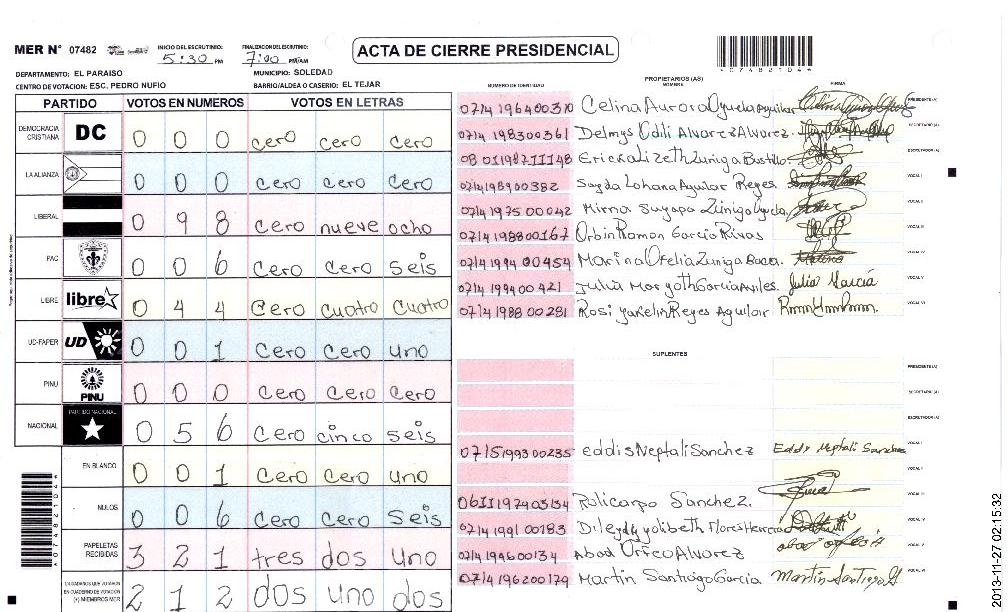 MER N° 07482
INICIO DEL ESCRUTINIO: 5:30 PM
FINALIZACION DEL ESCRUTINIO: 7:00 PM/AM
ACTA DE CIERRE PRESIDENCIAL
DEPARTAMENTO: EL PARAISO
MUNICIPIO: SOLEDAD
CENTRO DE VOTACION: ESC. PEDRO NUFIO
BARRIO/ALDEA O CASERIO: EL TEJAR
PARTIDO VOTOS EN NUMEROS VOTOS EN LETRAS
DEMOCRACIA CRISTIANA DC 0 0 0 cero cero cero
LA ALIANZA 0 0 0 cero cero cero
LIBERAL 0 9 8 cero nueve ocho
PAC 0 0 6 cero cero seis
LIBRE libre 0 4 4 cero cuatro cuatro
UD-FAPER UD 0 0 1 cero cero uno
PINU PINU 0 0 0 cero cero cero
NACIONAL PARTIDO NACIONAL 0 5 6 cero cinco seis
EN BLANCO 0 0 1 cero cero uno
NULOS 0 0 6 cero cero seis
PAPELETAS RECIBIDAS 3 2 1 tres dos uno
CIUDADANOS QUE VOTARON EN CUADERNO DE VOTACION (+) MIEMBROS MER 2 1 2 dos uno dos
NUMERO DE IDENTIDAD PROPIETARIOS (AS) FIRMA
0714 196400310 Celina Aurora Oyuela Aguilar PRESIDENTE (A)
0714 198300361 Delmys Alvarez Alvarez SECRETARIO (A)
Ericka Lizeth Zuniga Bustillo ESCRUTADOR (A)
0714198900382 Sayda Lohana Aguilar Reyes VOCAL I
0714 1975 00042 Mirna Suyapa Zúniga Oyuela VOCAL II
0714 198800167 Orbin Ramon Garcia Rivas VOCAL III
0714 1994 00454 Marina Ofelia Zuniga Baca VOCAL IV
0714 1994 00 421 Julia Maryoth Garcia Aviles. Julia García VOCAL V
0714 1988 00281 Rosi Yakelin Reyes Aguilar VOCAL VI
SUPLENTES
PRESIDENTE (A)
SECRETARIO (A)
ESCRUTADOR (A)
0715199300235 eddis Neptali Sanchez Eddy Neptali Sanchez VOCAL I
VOCAL II
0611197403134 Policarpo Sanchez. VOCAL III
0714 1991 00183 Flores Herrera VOCAL IV
0714 199600134 Abad Orfeo Alvarez VOCAL V
0714 196200179 Martin Santiago Garcia Martin Santiago G VOCAL VI
2013-11-27 02:15:32